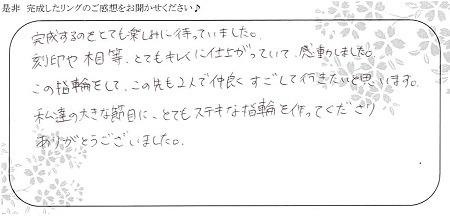 是非 完成したリングのご感想をお聞かせください♪
完成するのをとても楽しみに待っていました。
刻印や木目等、とてもキレイに仕上がっていて、感動しました。
この指輪をして、この先も2人で仲良くすごして行きたいと思います。
私達の大きな節目に、とてもステキな指輪を作ってくださり
ありがとうございました。